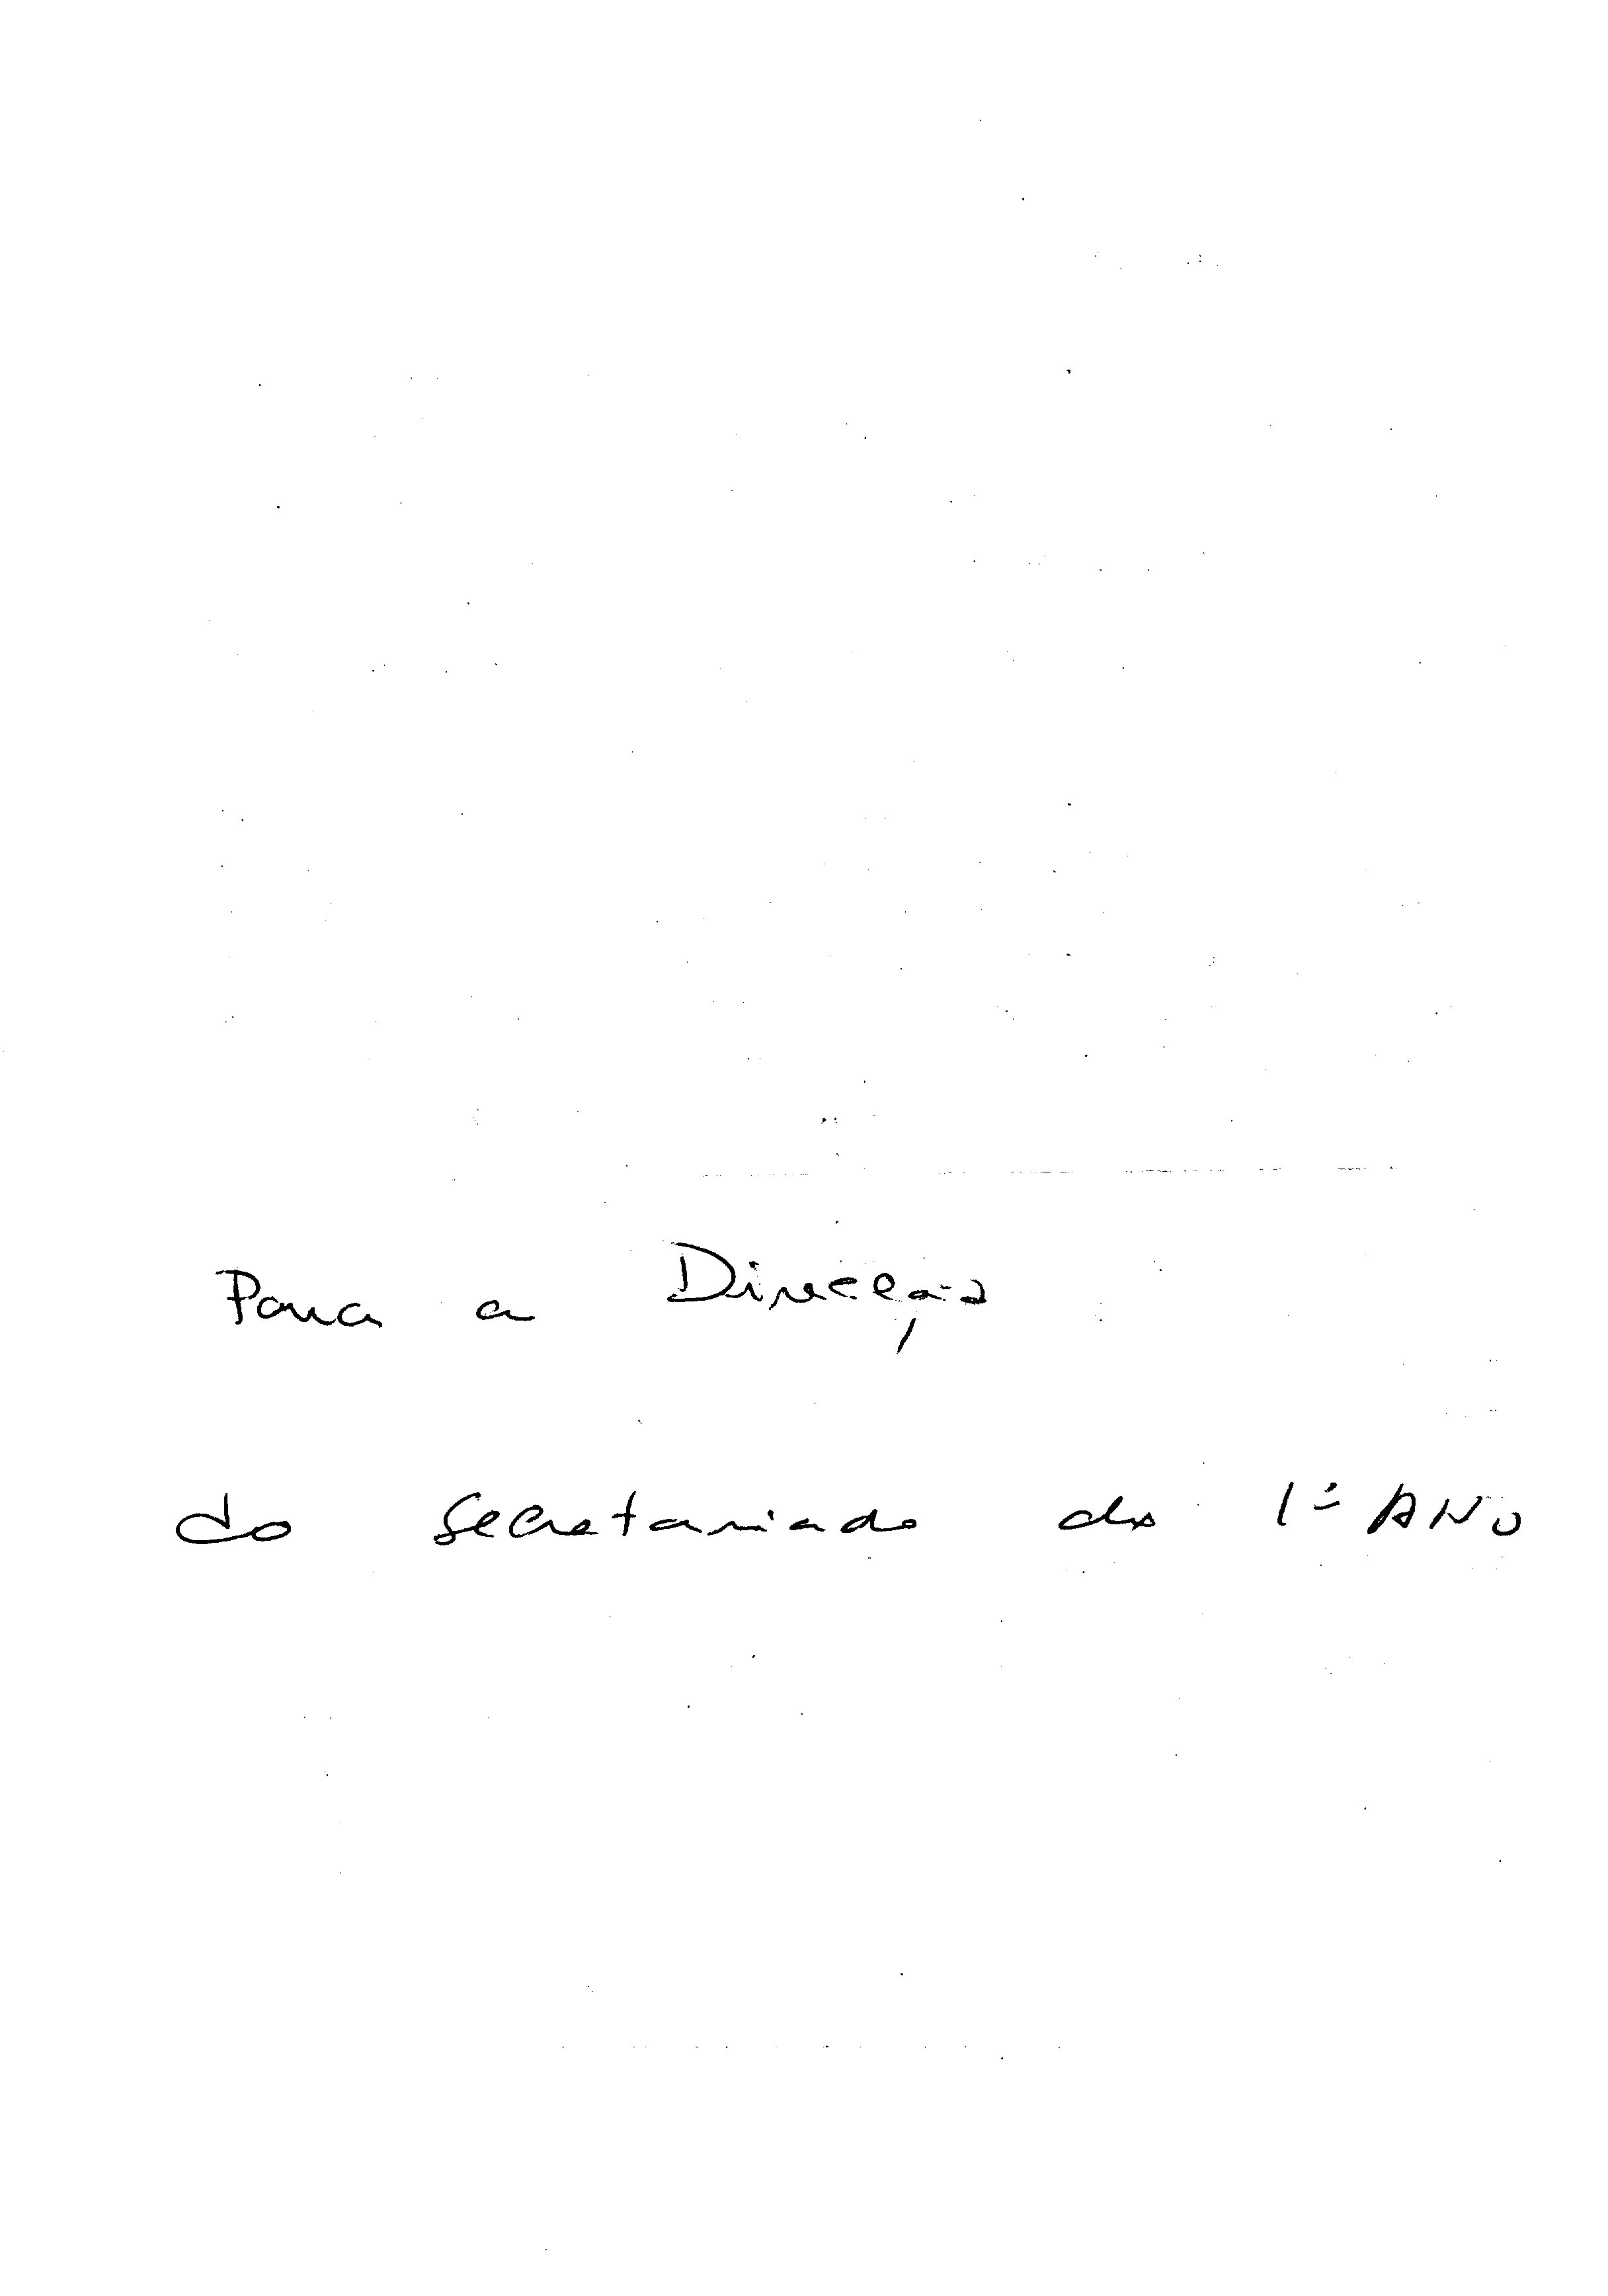 Para a Direcção
do Secretariado do 1º ANO